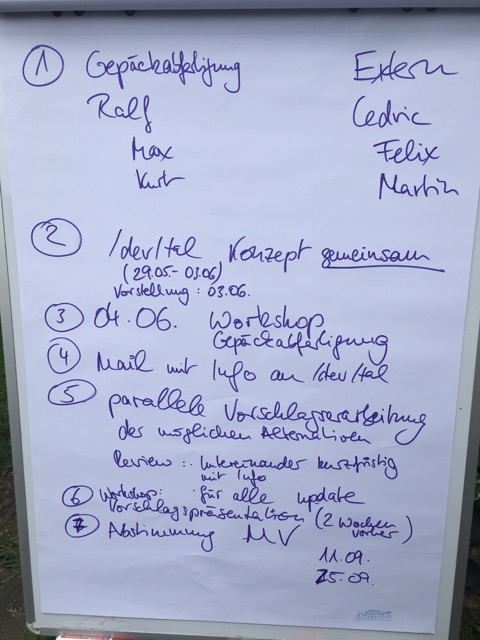 ① Gepäckabfertigung Extern
Ralf Cedric
Max Felix
Kurt Martin
② /dev/tal Konzept gemeinsam
(29.05.-03.06)
Vorstellung: 03.06.
③ 04.06. Workshop
Gepäckabfertigung
④ Mail mit Info an /dev/tal
⑤ parallele Vorschlagserarbeitung
der möglichen Alternativen
Review: Untereinander kurzfristig
mit Info
⑥ Workshop: für alle update
Vorschlagspräsentation (2 Wochen
vorher)
⑦ Abstimmung MV
11.09.
25.09.